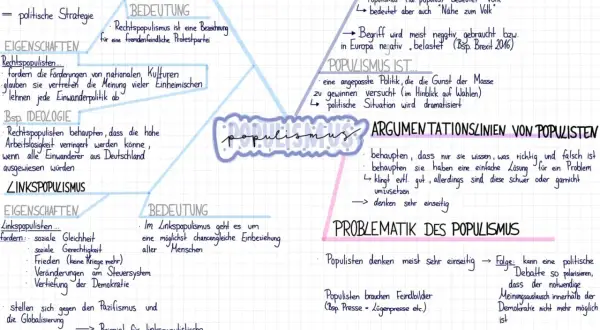 — politische Strategie
BEDEUTUNG
· Rechtspopulismus ist eine Bezeichnung
für eine fremdenfeindliche Protestpartei
EIGENSCHAFTEN
Rechtspopulisten...
· fordern die Förderungen von nationalen Kulturen
· glauben sie vertreten die Meinung vieler Einheimischen
· lehnen jede Einwanderpolitik ab
Bsp. IDEOLOGIE
· Rechtspopulisten behaupten, dass die hohe
Arbeitslosigkeit verringert werden könne,
wenn alle Einwanderer aus Deutschland
ausgewiesen würden
LINKSPOPULISMUS
EIGENSCHAFTEN
Linkspopulisten...
fordern: · soziale Gleichheit
· soziale Gerechtigkeit
· Frieden (keine Kriege mehr)
· Veränderungen am Steuersystem
· Vertiefung der Demokratie
· stellen sich gegen den Pazifismus und
die Globalisierung
BEDEUTUNG
· Im Linkspopulismus geht es um
eine möglichst chancengleiche Einbeziehung
aller Menschen
POPULISMUS
populismus
↳ bedeutet aber auch "Nähe zum Volk"
→ Begriff wird meist negativ gebraucht bzw.
in Europa negativ "belastet" (Bsp. Brexit 2016)
POPULISMUS IST...
· eine angepasste Politik, die die Gunst der Masse
zu gewinnen versucht (im Hinblick auf Wahlen)
↳ politische Situation wird dramatisiert
ARGUMENTATIONSLINIEN VON POPULISTEN
· behaupten, dass nur sie wissen, was richtig und falsch ist
· behaupten sie haben eine einfache Lösung für ein Problem
↳ klingt evtl. gut, allerdings sind diese schwer oder garnicht
umzusetzen
→ denken sehr einseitig
PROBLEMATIK DES POPULISMUS
· Populisten denken meist sehr einseitig → Folge: kann eine politische
Debatte so polarisieren,
dass der notwendige
Meinungsaustausch innerhalb der
Demokratie nicht mehr möglich
ist
· Populisten brauchen Feindbilder
(Bsp. Presse = Lügenpresse etc.)